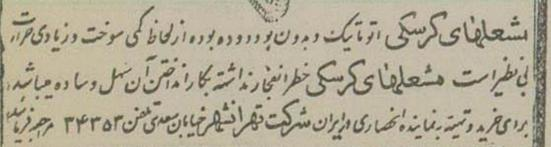 مشعلهای کرسکی اتوماتیک و بدون بو و دوده بوده از لحاظ کمی سوخت و زیادی حرارت
بی نظیر است مشعلهای کرسکی خطر انفجار نداشته بکار انداختن آن سهل و ساده میباشد،
برای خرید و تهیه به نماینده انحصاری در ایران شرکت تهرانشهر خیابان سعدی تلفن ۳۴۳۵۳ مراجعه فرمائید